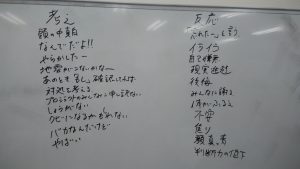 考え
頭の中真白
なんでだよ!!
やらかしたー
地震がこないかな〜
あのとき、もし、確認していれば
対処を考える
プロジェクトのみんなに申し訳ない
しょうがない
クビになるかもしれない
バカなんだけど
やばい
反応
「忘れたー」と言う
イライラ
自己嫌悪
現実逃避
後悔
みんなに謝る
体がふるえる
不安
焦り
顔真青
判断力の低下